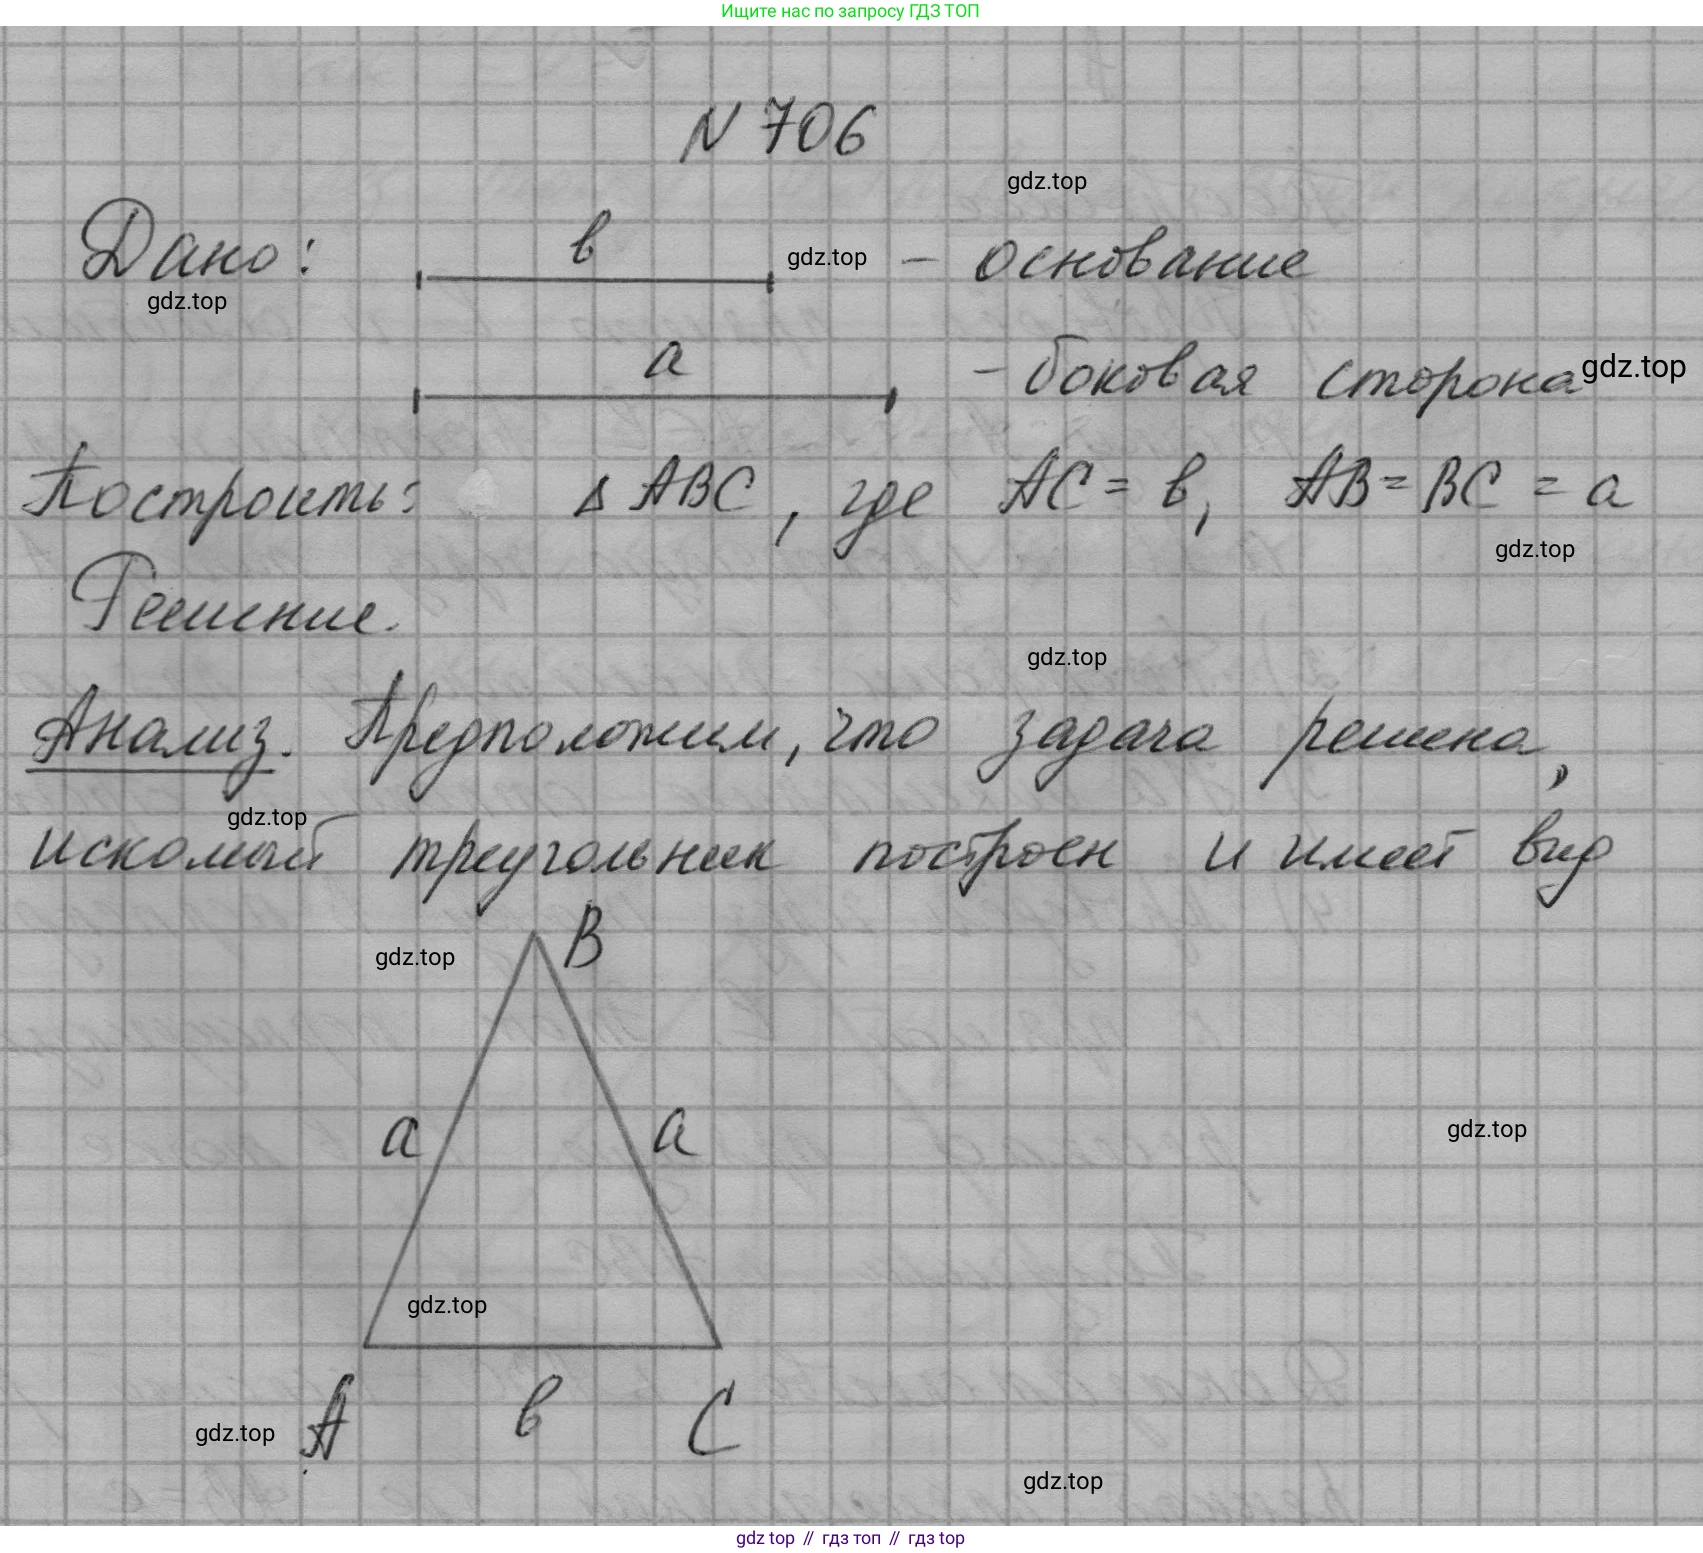 Ищите нас по запросу ГДЗ ТОП
N 706
gdz.top
Дано: в gdz.top - основание
gdz.top
а - боковая сторона gdz.top
Построить: Δ ABC, где AC = в, AB = BC = а
gdz.top
Решение.
gdz.top
Анализ. Предположим, что задача решена,
gdz.top
искомый треугольник построен и имеет вид
B
gdz.top
a a
gdz.top
gdz.top
A в C
gdz.top
gdz.top
gdz top // гдз топ // гдз top